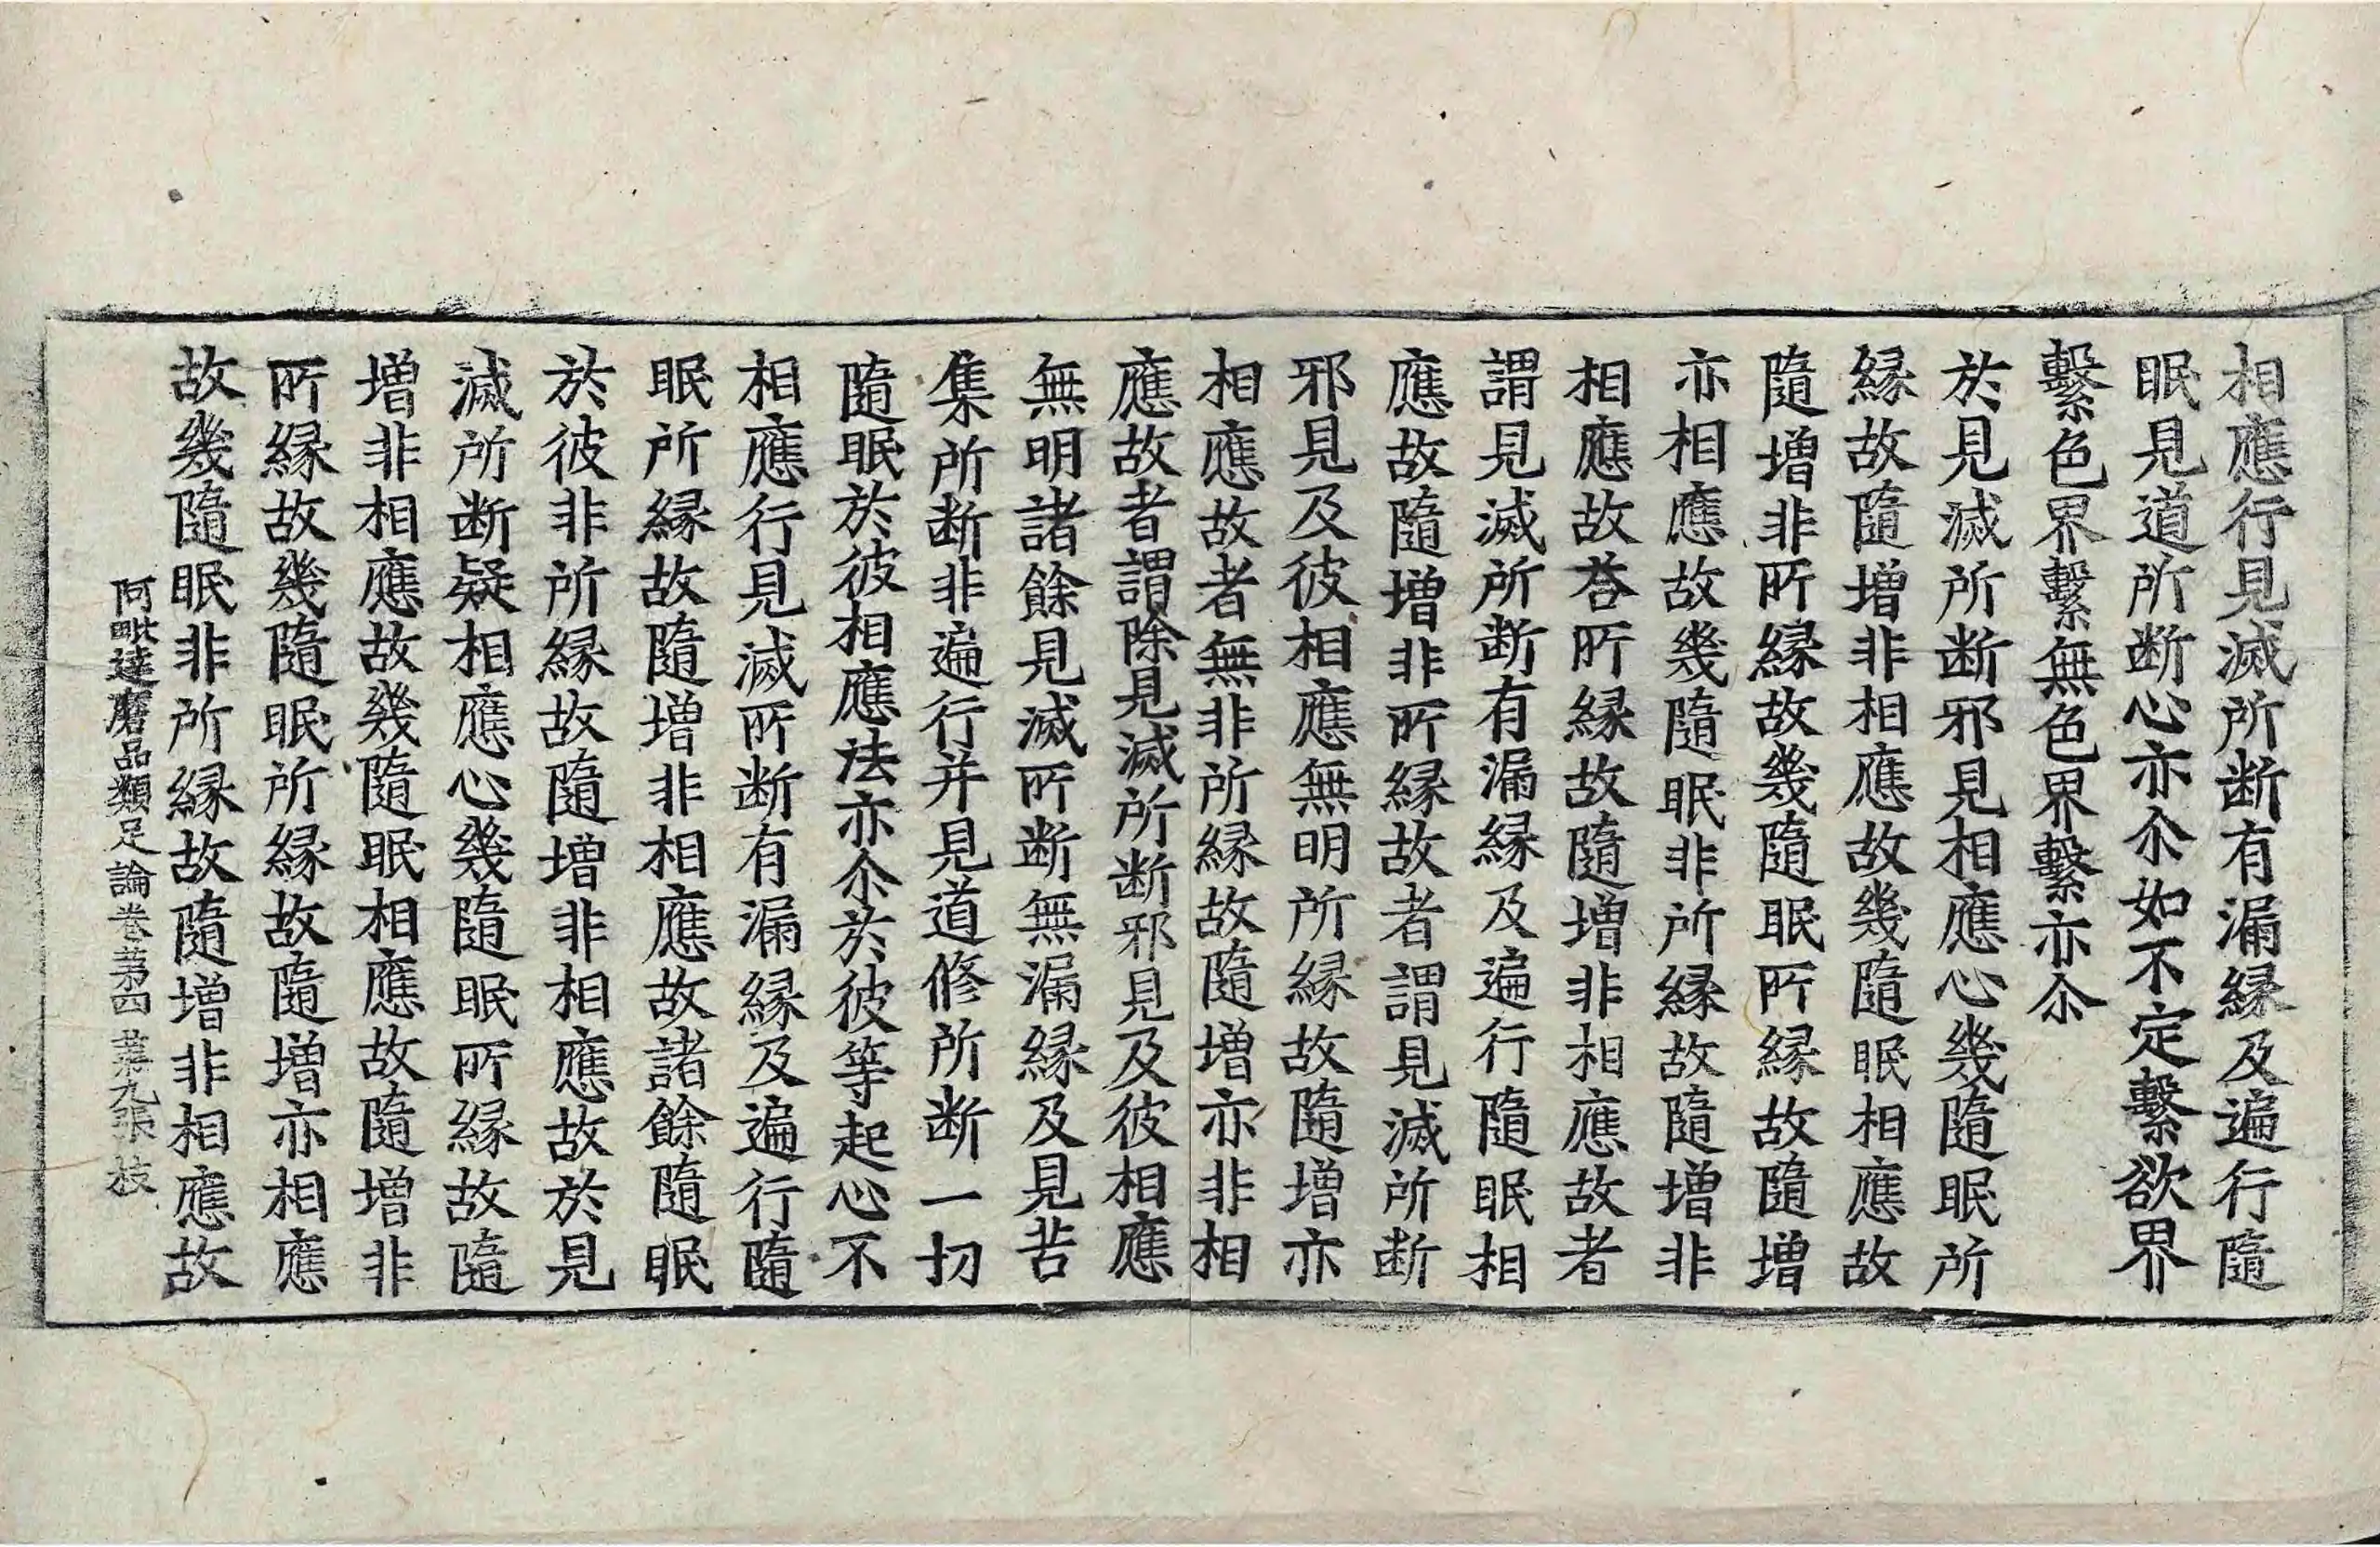 相應行見滅所断有漏縁及遍行隨
眠見道所断心亦尒如不定繫欲界
繫色界繫無色界繫亦尒
於見滅所断邪見見相應心幾隨眠所
縁故隨增非相應故幾隨眠相應故
隨增非所縁故幾隨眠所縁故隨增
亦相應故幾隨眠非所縁故隨增非
相應故荅所縁故隨增非相應故者
謂見滅所断有漏縁及遍行隨眠相
應故隨增非所縁故者謂見滅所断
邪見及彼相應無明所縁故隨增亦
相應故者無非所縁故隨增亦非相
應故者謂除見滅所断邪見及彼相應
無明諸餘見滅所断無漏縁及見苦
集所断非遍行并見道修所断一切
隨眠於彼相應法亦尒於彼等起心不
相應行見滅所断有漏縁及遍行隨
眠所縁故隨增非相應故諸餘隨眠
於彼非所縁故隨增非相應故於見
滅所断疑相應心幾隨眠所縁故隨
增非相應故幾隨眠相應故隨增非
所縁故幾隨眠所縁故隨增亦相應
故幾隨眠非所縁故隨增非相應故
阿毗達磨品類足論卷苐四 苐九張 枝